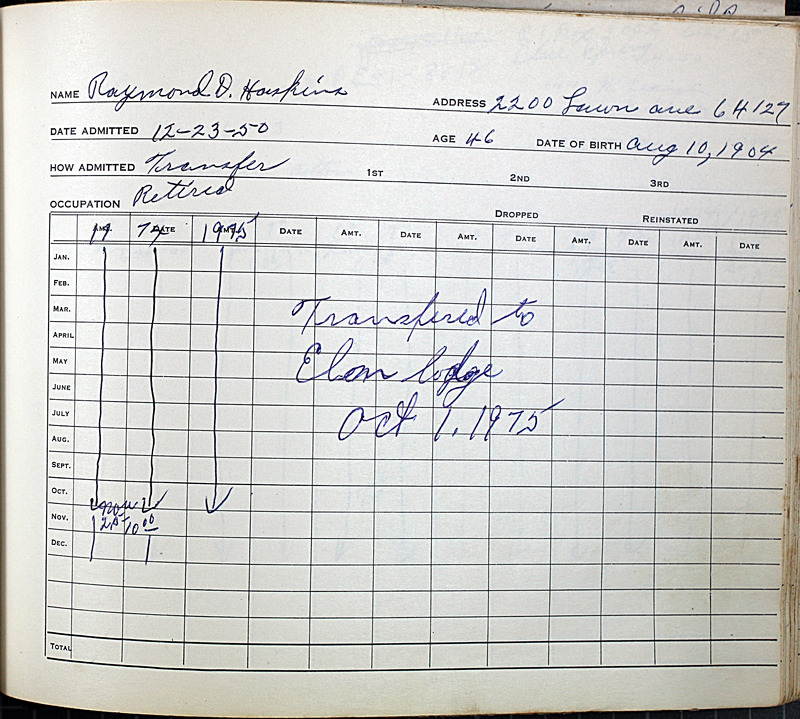 NAME Raymond D. Haskins ADDRESS 2200 Lawn ave 64127
DATE ADMITTED 12-23-50 AGE 46 DATE OF BIRTH Aug 10, 1904
HOW ADMITTED Transfer 1ST 2ND 3RD
OCCUPATION Retired
DROPPED REINSTATED
AMT. DATE AMT. DATE AMT. DATE AMT. DATE AMT. DATE AMT. DATE
19 74 1975
JAN.
FEB.
MAR. Transfered to
APRIL
MAY Elon lodge
JUNE
JULY Oct 1, 1975
AUG.
SEPT.
OCT.
NOV. 10 00
DEC.
TOTAL